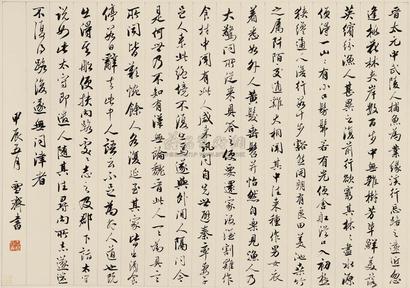 晉太元中武陵人捕魚為業緣溪行忘路之遠近忽
逢桃花林夾岸數百步中無雜樹芳草鮮美落
英繽紛漁人甚異之復前行欲窮其林林盡水源
便得一山山有小口髣髴若有光便舍船從口入初極
狹纔通人復行數十步豁然開朗有良田美池桑竹
之屬阡陌交通雞犬相聞其中往來種作男女衣
著悉如外人黃髮垂髫並怡然自樂見漁人乃
大驚問所從來具答之便要還家設酒殺雞作
食村中聞有此人咸來問訊自云先世避秦率妻子
邑人來此絕境不復出焉遂與外人隔問今
是何世乃不知有漢無論魏晉此人一一為具言
所聞皆嘆惋餘人各復延至其家皆出酒食
停數日辭去此中人語云不足為外人道也既
出得其船便扶向路處處志之及郡下詣太守
說如此太守即遣人隨其往尋向所志遂迷
不復得路後遂無問津者
甲辰五月 書